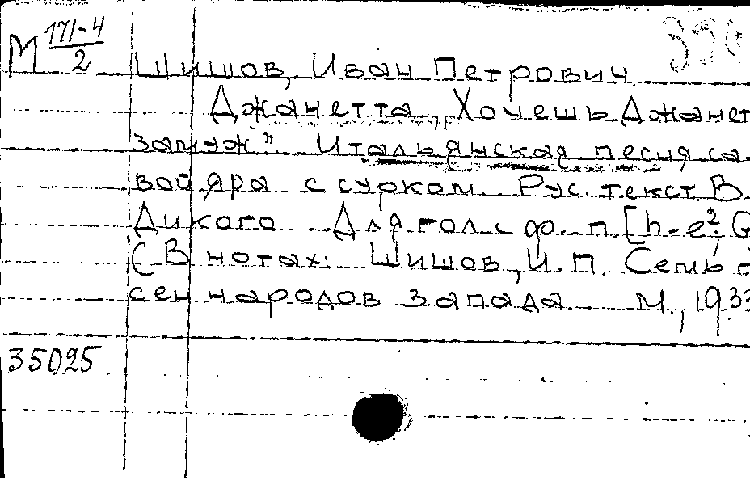 М 171-4/2
Шишов, Иван Петрович
Джанетта, Хочешь Джанет
замуж". Итальянская песня са
вояра с сурком. Рус. текст В.
Дикого Для гол. с ф.-п. [h-e²; G
(В нотах: Шишов, И.П. Семь
сен народов запада М., 1933
35025